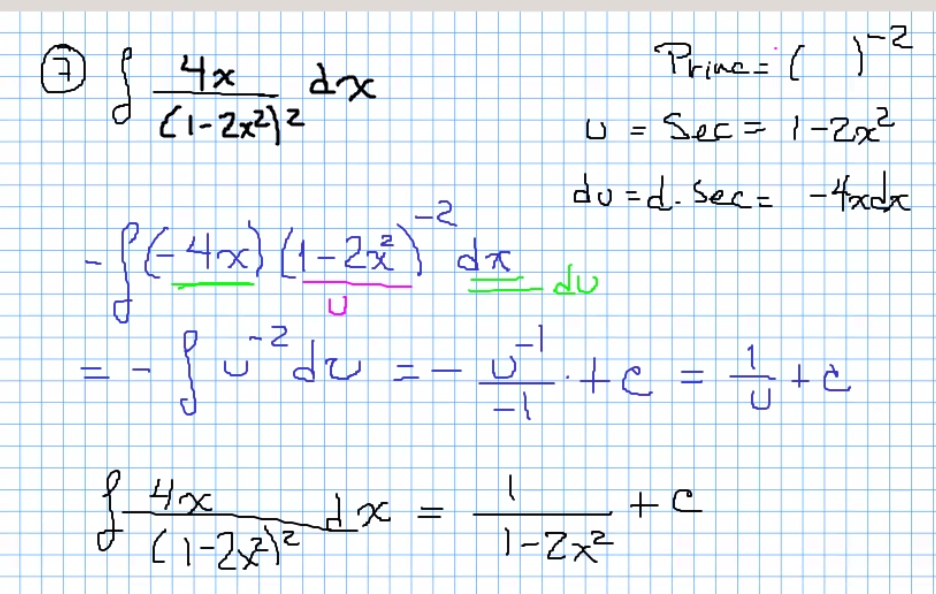 ⑦ ∫ 4x/(1-2x²)² dx
Princ = ( )⁻²
u = Sec = 1-2x²
du = d. Sec = -4xdx
-∫(-4x)(1-2x²)⁻² dx
u du
= - ∫ u⁻² du = - u⁻¹/-1 . + c = 1/u + c
∫ 4x/(1-2x²)² dx = 1/(1-2x²) + c